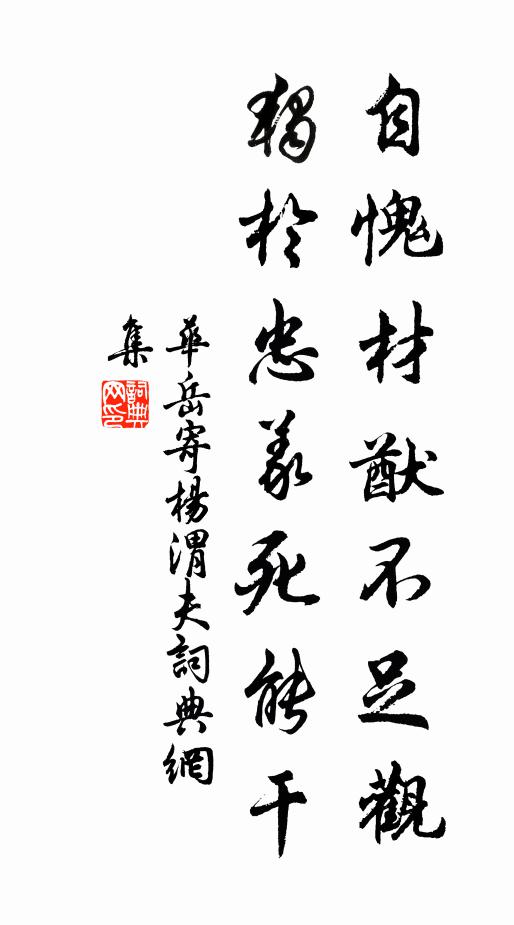 自愧材猷不足觀
獨於忠義死能干
華岳寄楊渭夫詞典網
集
詞典
網印